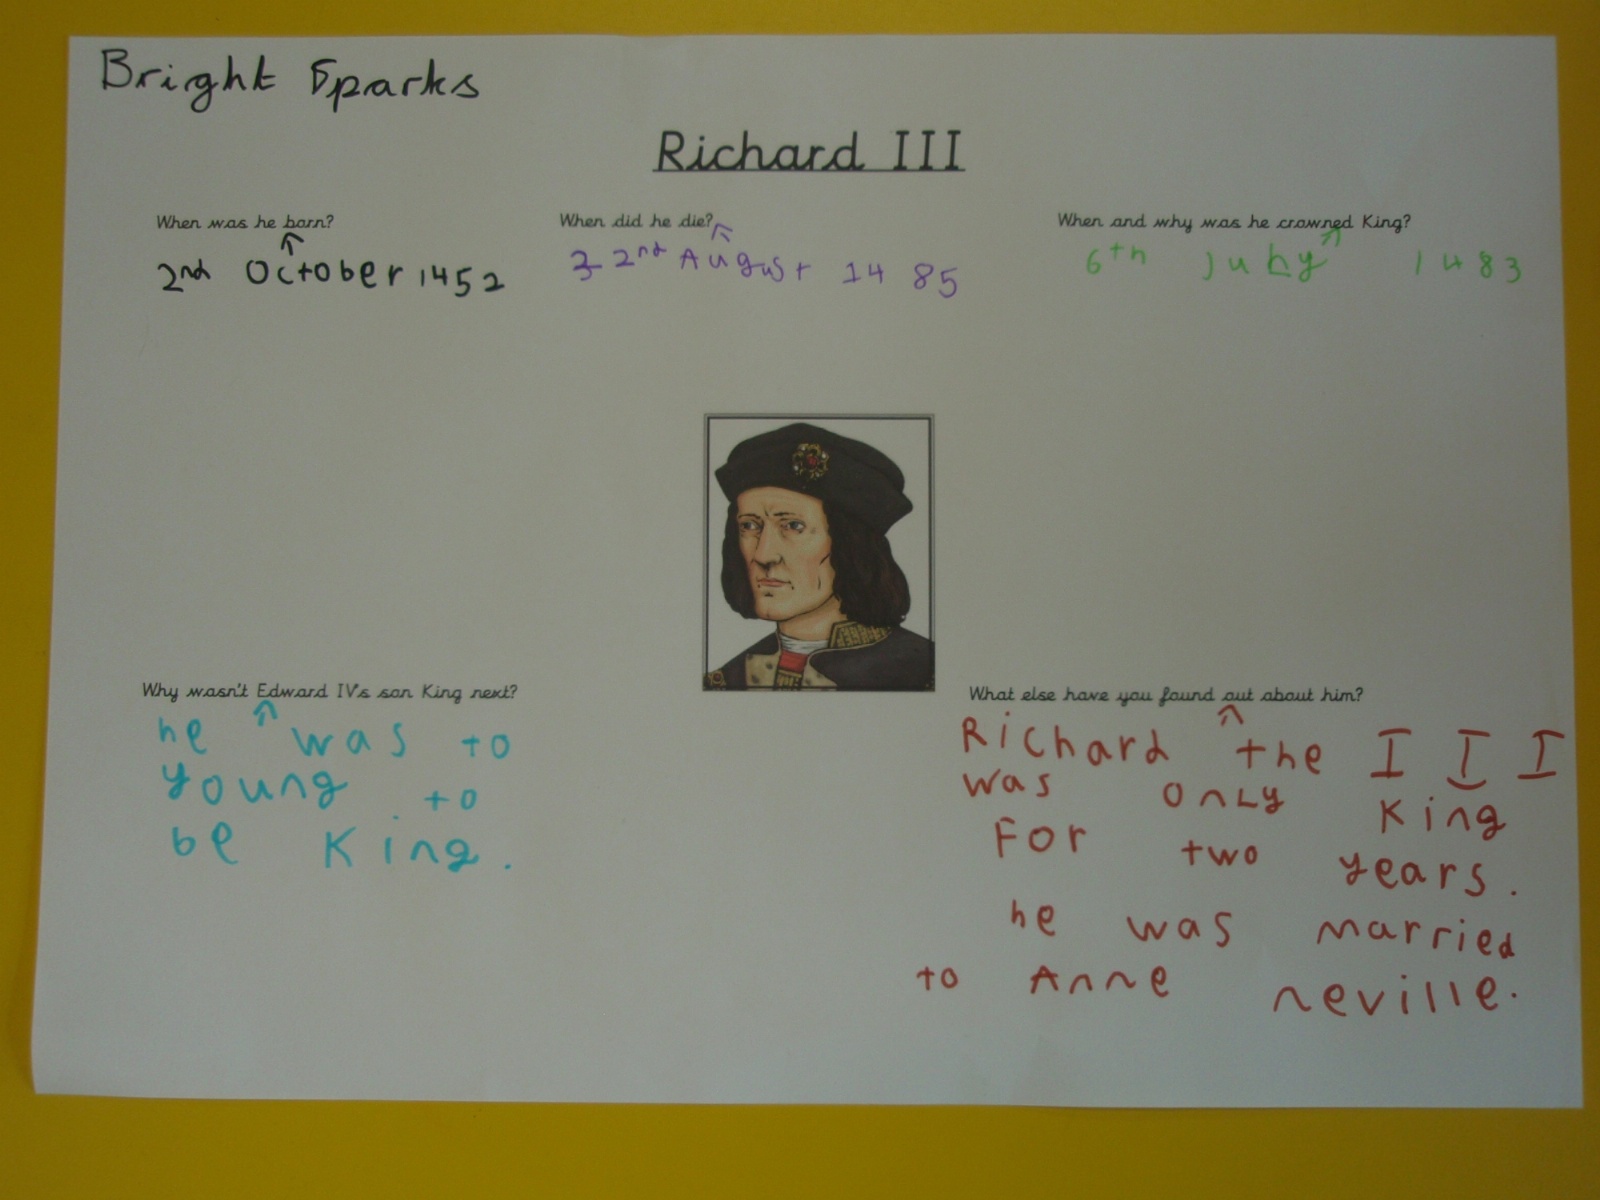 Bright Sparks
Richard III
When was he born?
2nd October 1452
When did he die?
22nd August 1485
When and why was he crowned King?
6th July 1483
Why wasn't Edward IV's son King next?
he was to
young to
be King.
What else have you found out about him?
Richard the III
was only King
For two years.
he was married
to Anne neville.